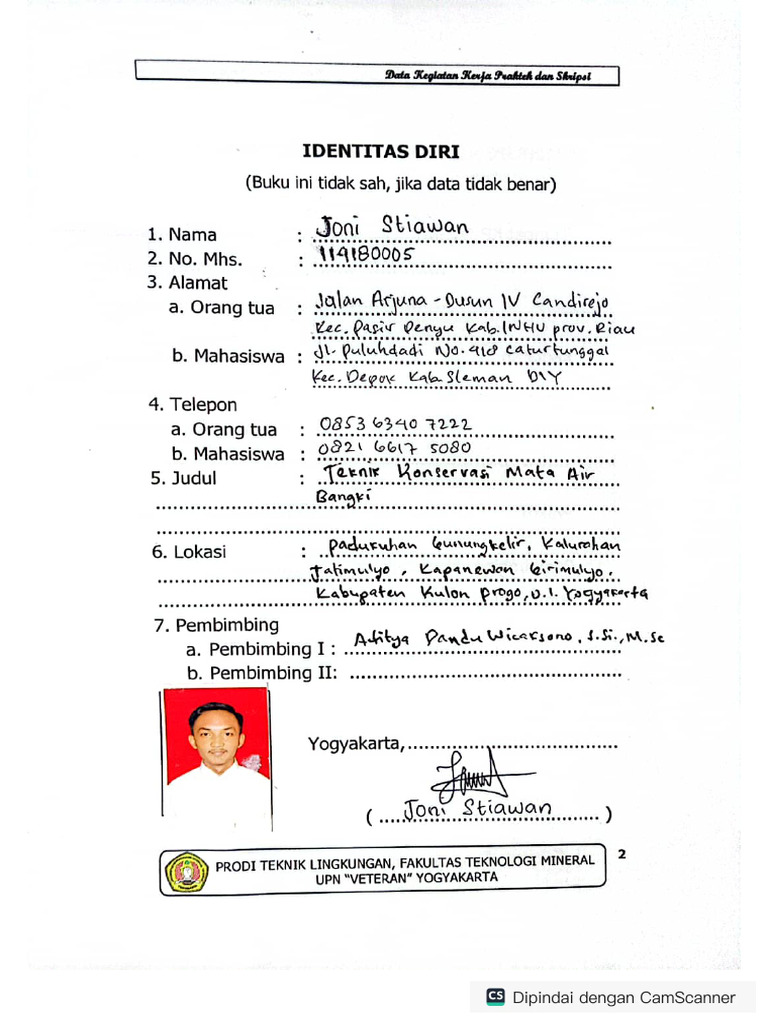 Data Kegiatan Kerja Praktek dan Skripsi
IDENTITAS DIRI
(Buku ini tidak sah, jika data tidak benar)
1. Nama : Joni Stiawan
2. No. Mhs. : 114180005
3. Alamat
a. Orang tua : Jalan Arjuna - Dusun IV Candirejo
Kec. Pasir Penyu Kab. INHU prov. Riau
b. Mahasiswa : Jl. Puluhdadi No. 418 Caturtunggal
Kec. Depok Kab. Sleman DIY
4. Telepon
a. Orang tua : 0853 6340 7222
b. Mahasiswa : 0821 6617 5080
5. Judul : Teknik Konservasi Mata Air
Bangki
6. Lokasi : Padukuhan Gunungkelir, Kalurahan
Jatimulyo, Kapanewon Girimulyo,
Kabupaten Kulon Progo, D.I. Yogyakarta
7. Pembimbing
a. Pembimbing I : Aditya Pandu Wicaksono, S.Si., M.Sc
b. Pembimbing II:
Yogyakarta,
( Joni Stiawan )
PRODI TEKNIK LINGKUNGAN, FAKULTAS TEKNOLOGI MINERAL
UPN "VETERAN" YOGYAKARTA
2
CS Dipindai dengan CamScanner